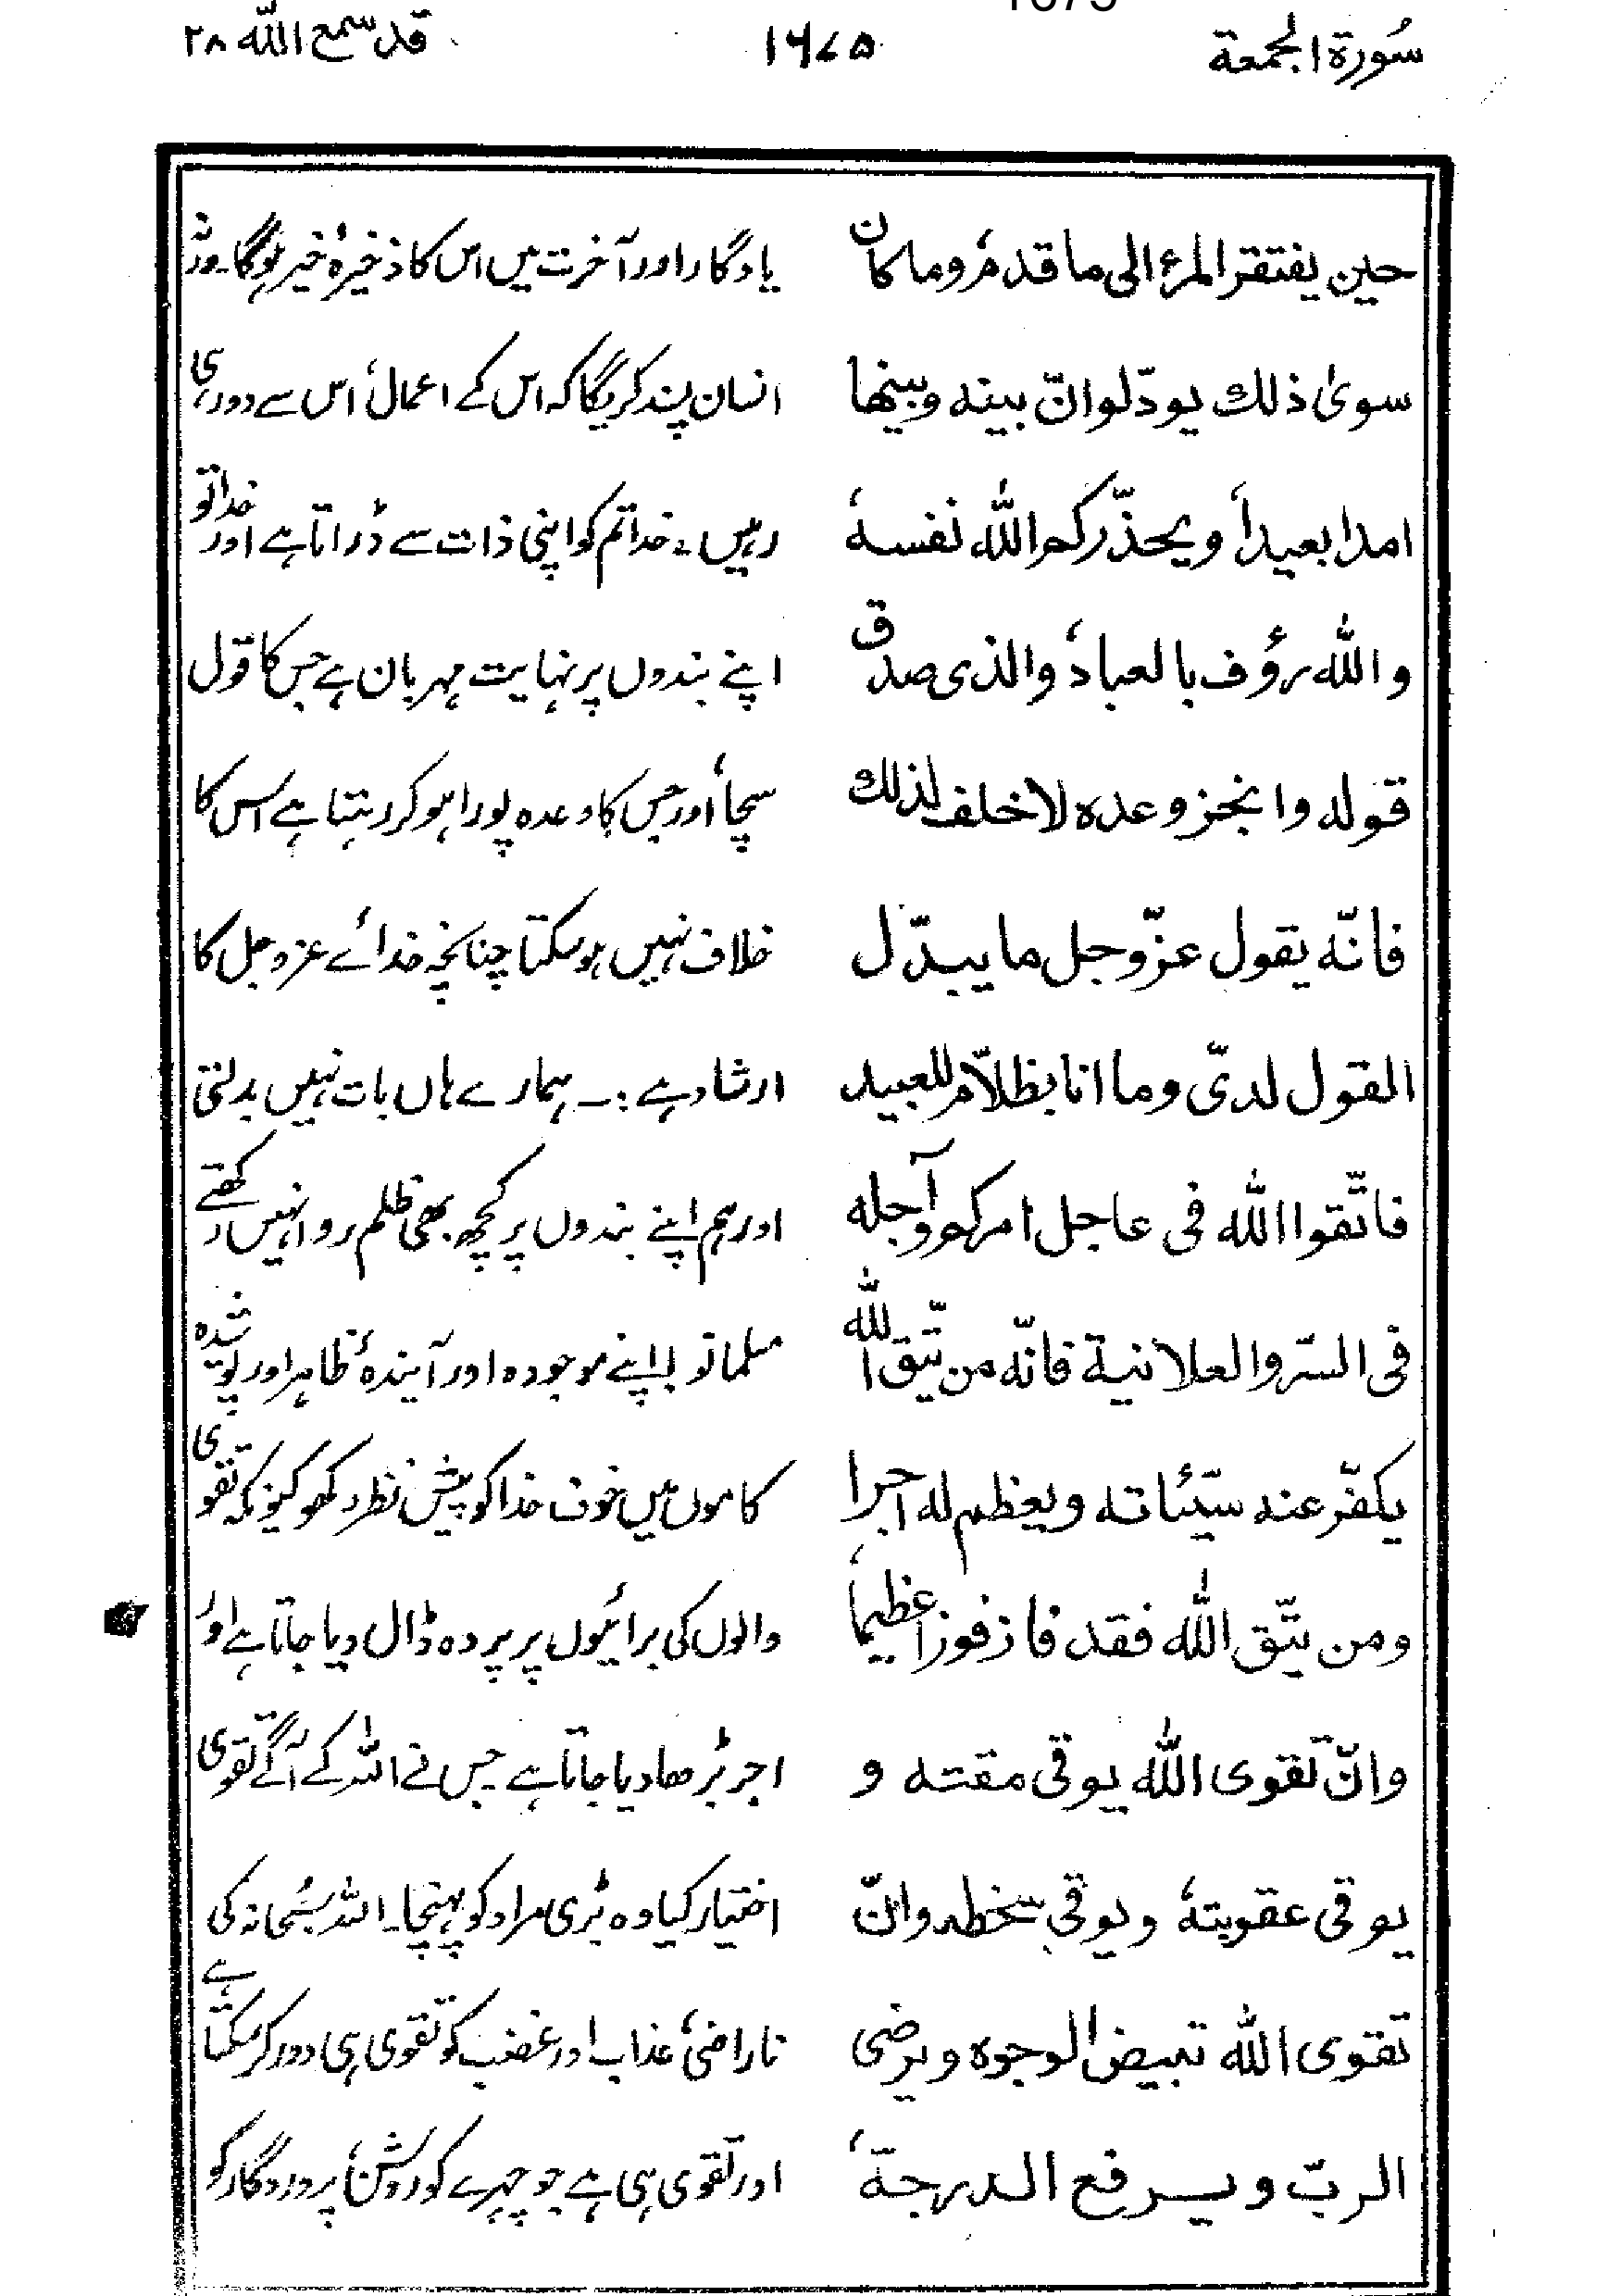 سُورة الجمعة
۱۶۷۵
قد سمع الله ۲۸
حين يفتقر المرء الى ما قدم، وما كان
سوىٰ ذلك يودّ لو انّ بينه وبينها
امدا بعيداً ويحذّركم الله نفسه،
والله رؤف بالعباد، والذى صدق
قوله وانجز وعده لا خلف لذلك
فانّه يقول عزّ وجل ما يبدّل
القول لدىّ وما انا بظلاّم للعبيد
فاتّقوا الله فى عاجل امركم وآجله
فى السّر والعلانية فانّه من يتّق الله
يكفّر عنه سيّئاته ويعظم له اجرا،
ومن يتّق الله فقد فاز فوزا عظيما
وانّ تقوى الله يوقى مقته و
يوقى عقوبته، ويوقى سخطه وانّ
تقوى الله تبيض الوجوه ويرضى
الربّ ويرفع الدرجة،
یادگار اور آخرت میں اس کا ذخیرۂ خیر ہوگا۔ ورنہ
انسان پسند کریگا کہ اس کے اعمال، اس سے دور ہی
رہیں۔ خدا تم کو اپنی ذات سے ڈراتا ہے اور خدا تو
اپنے بندوں پر نہایت مہربان ہے جس کا قول
سچا، اور جس کا وعدہ پورا ہو کر رہتا ہے اس کا
خلاف نہیں ہو سکتا چنانچہ خدائے عزوجل کا
ارشاد ہے :۔ ہمارے ہاں بات نہیں بدلتی
اور ہم اپنے بندوں پر کچھ بھی ظلم روا نہیں رکھتے
مسلمانو! اپنے موجودہ اور آیندہ، ظاہر اور پوشیدہ
کاموں میں خوف خدا کو پیش نظر رکھو کیونکہ تقوی
والوں کی برائیوں پر پردہ ڈال دیا جاتا ہے اور
اجر بڑھا دیا جاتا ہے جس نے اللہ کے آگے تقوی
اختیار کیا وہ بڑی مراد کو پہنچا۔ اللہ سبحانہ کی
ناراضی، عذاب اور غضب کو تقوی ہی دور کر سکتا ہے
اور تقوی ہی ہے جو چہرے کو روشن، پروردگار کو